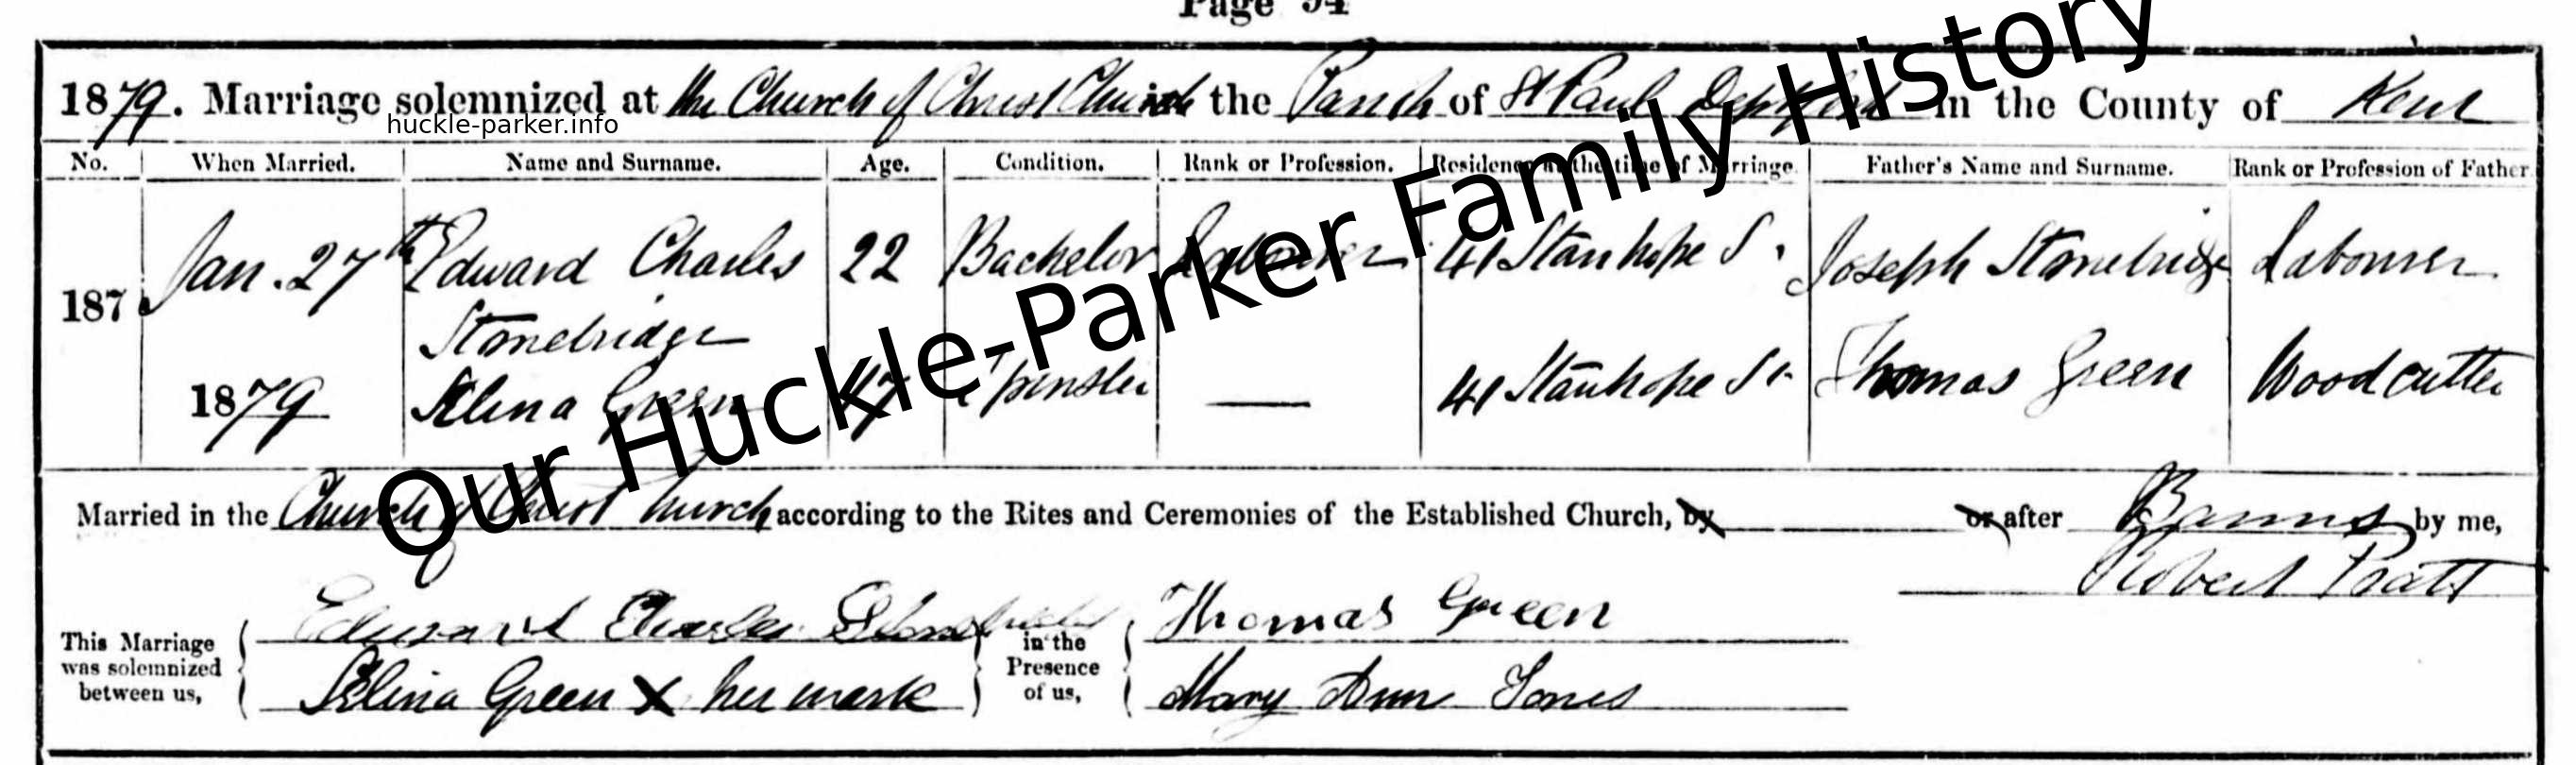 Page 94
1879. Marriage solemnized at the Church of Christ Church the Parish of St Paul Deptford in the County of Kent
huckle-parker.info
No. When Married. Name and Surname. Age. Condition. Rank or Profession. Residence at the time of Marriage. Father's Name and Surname. Rank or Profession of Father
Jan. 27th Edward Charles 22 Bachelor Labourer 41 Stanhope St Joseph Stonebridge Labourer
187
Stonebridge
1879 Selina Green Spinster — 41 Stanhope St Thomas Green Woodcutter
Our Huckle-Parker Family History
Married in the Church of Christ Church according to the Rites and Ceremonies of the Established Church, by or after Banns by me,
Robert Pratt
This Marriage was solemnized between us, Edward Charles Stonebridge in the Presence of us, Thomas Green
Selina Green X her mark Mary Ann Jones